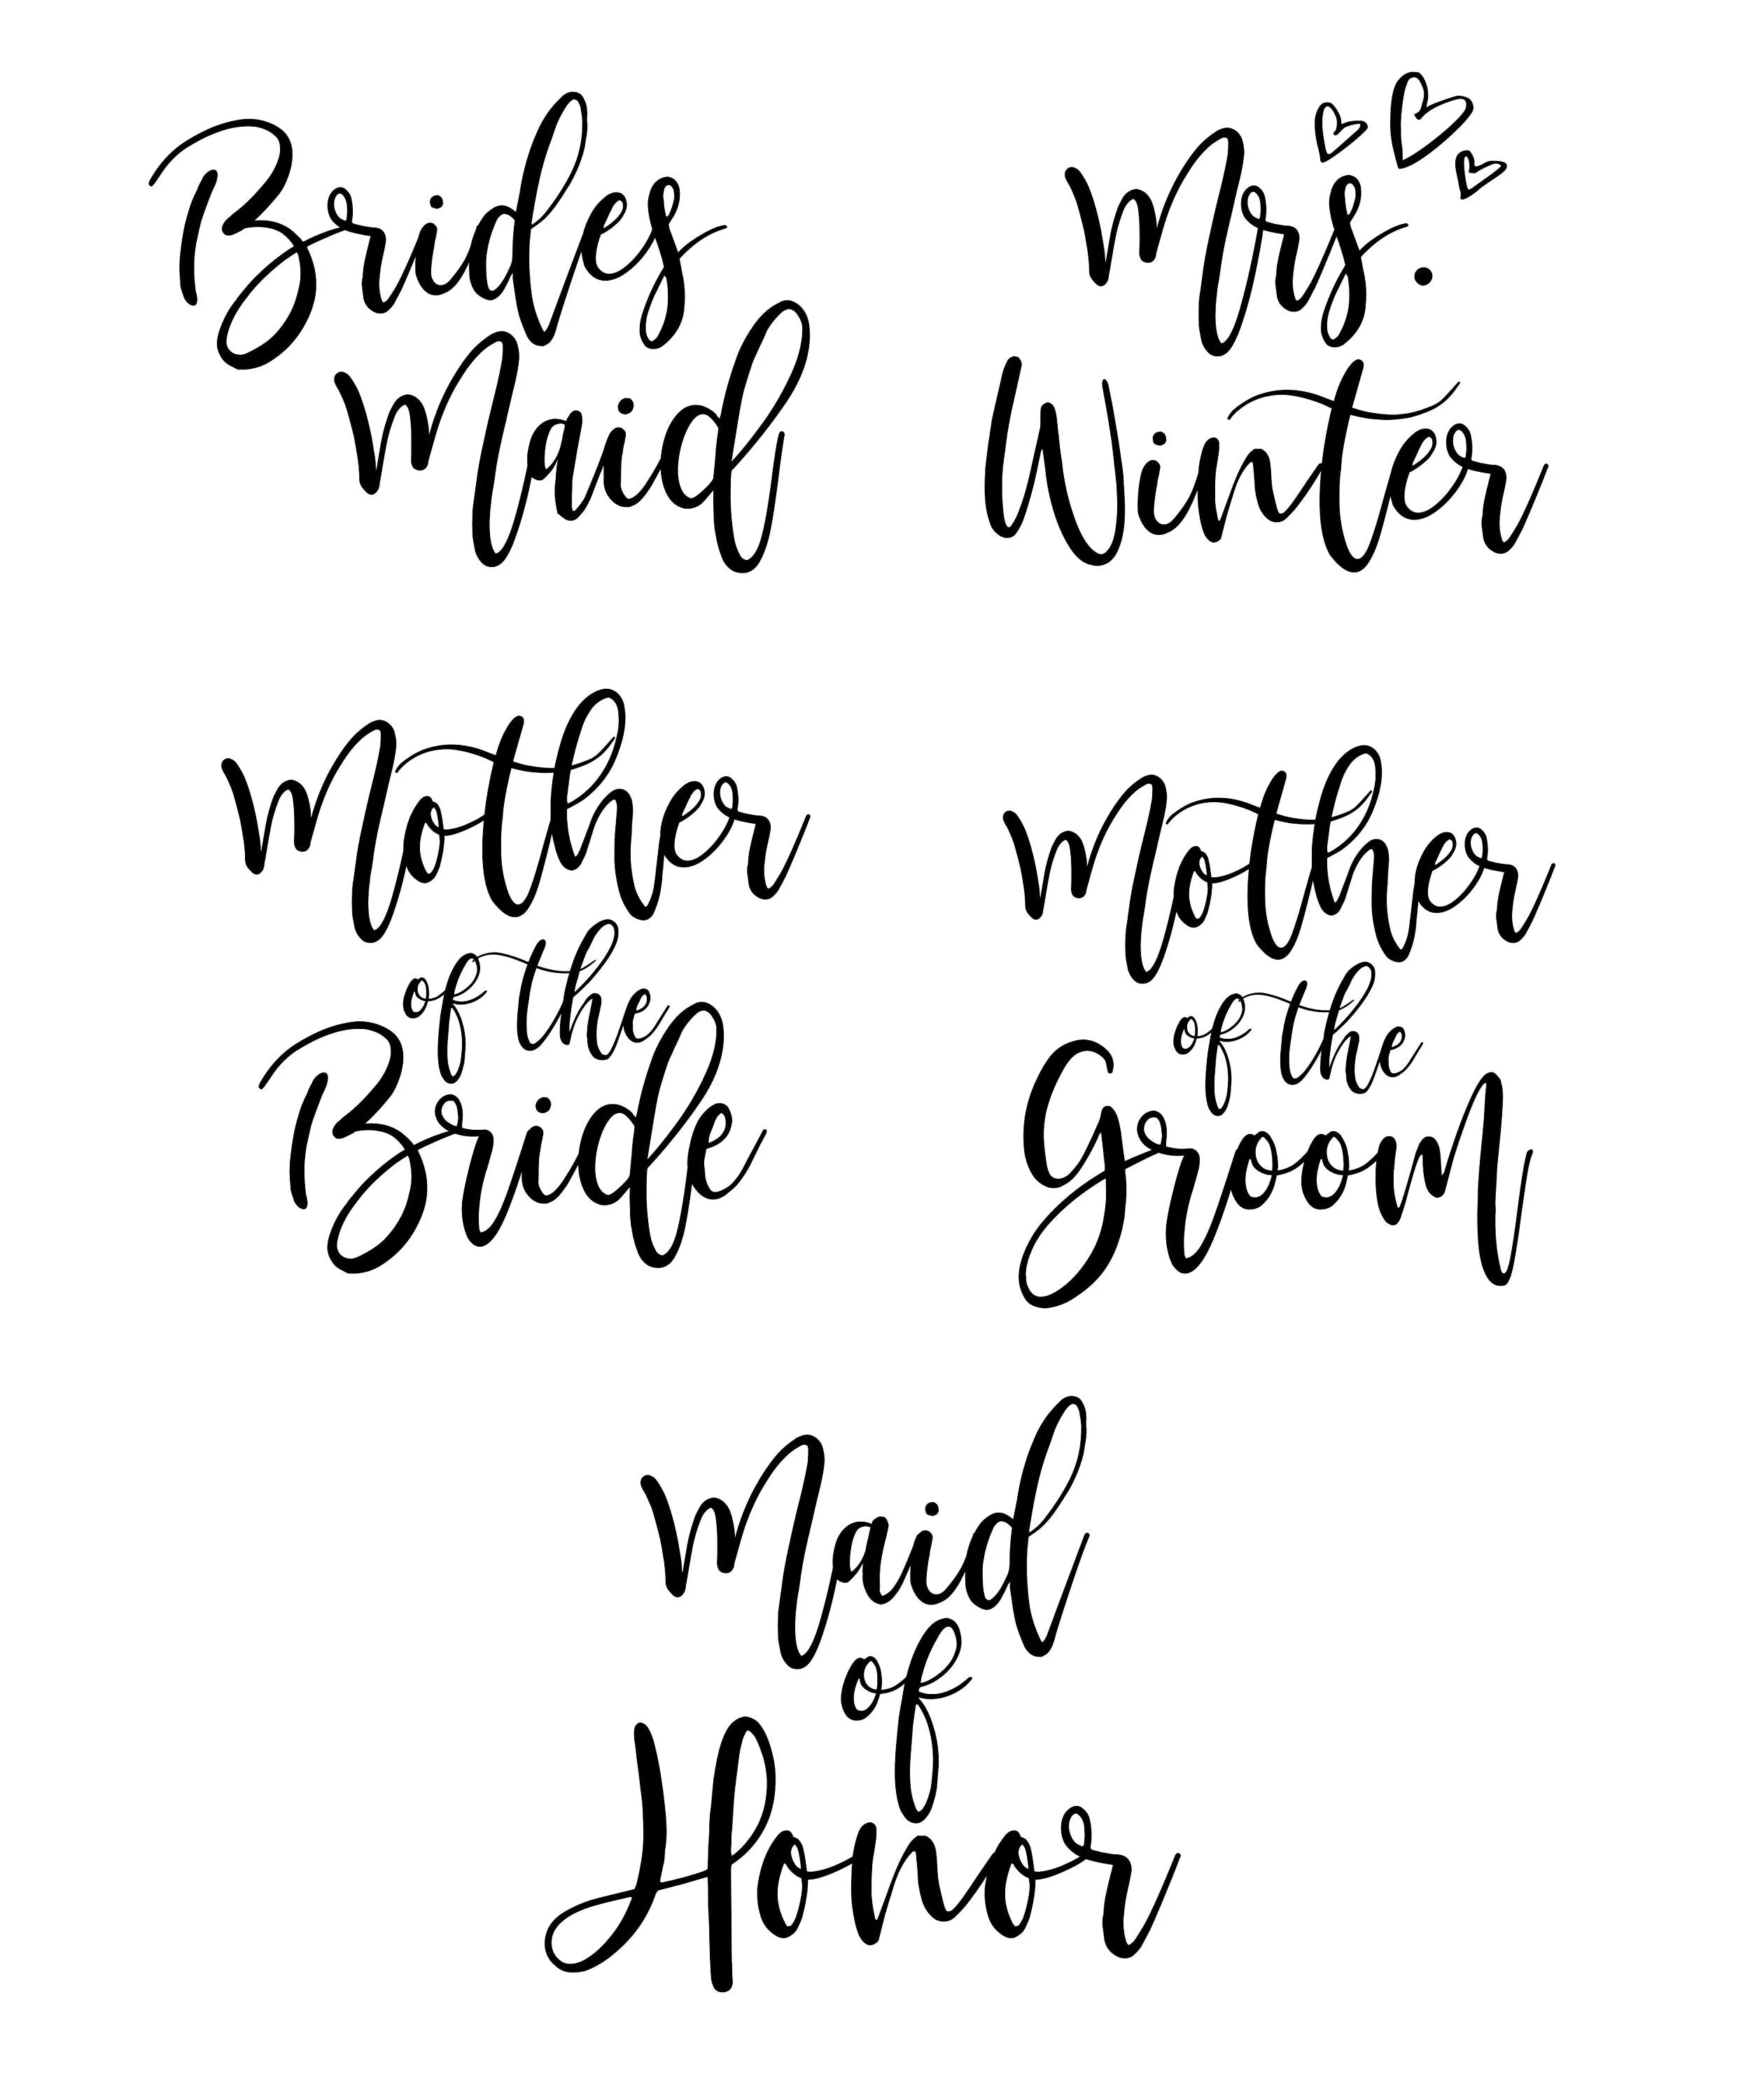 Brides
Maid
Mrs.
Winter
Mother
of the
Bride
Mother
of the
Groom
Maid
of
Honor